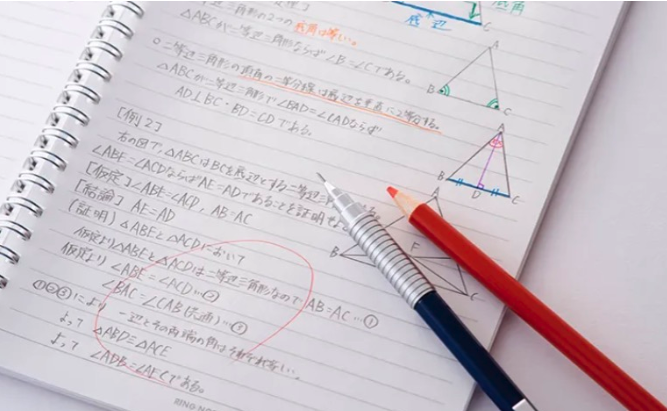 二等辺三角形の2つの底角は等しい。
△ABCが二等辺三角形ならば∠B=∠Cである。
底辺
底角
○二等辺三角形の頂角の二等分線は底辺を垂直に2等分する。
△ABCが二等辺三角形で∠BAD=∠CADならば
AD⊥BC・BD=CDである。
A
B
C
[例2]
右の図で、△ABCはBCを底辺とする二等辺三
∠ABE=∠ACDならばAE=ADであることを証明せ
る。
[仮定]∠ABE=∠ACD, AB=AC
[結論] AE=AD
(証明) △ABEと△ACDにおいて
仮定より△ABEと△ACDは二等辺三角形なので AB=AC…①
仮定より ∠ABE=∠ACD…②
∠BAC=∠CAB(共通)…③
①②③により 一辺とその両端の角はそれぞれ等しい。
よって △ABD≡△ACE
よって ∠ADB=∠AECである。
A
B
D
C
A
B
F
C
RING NO